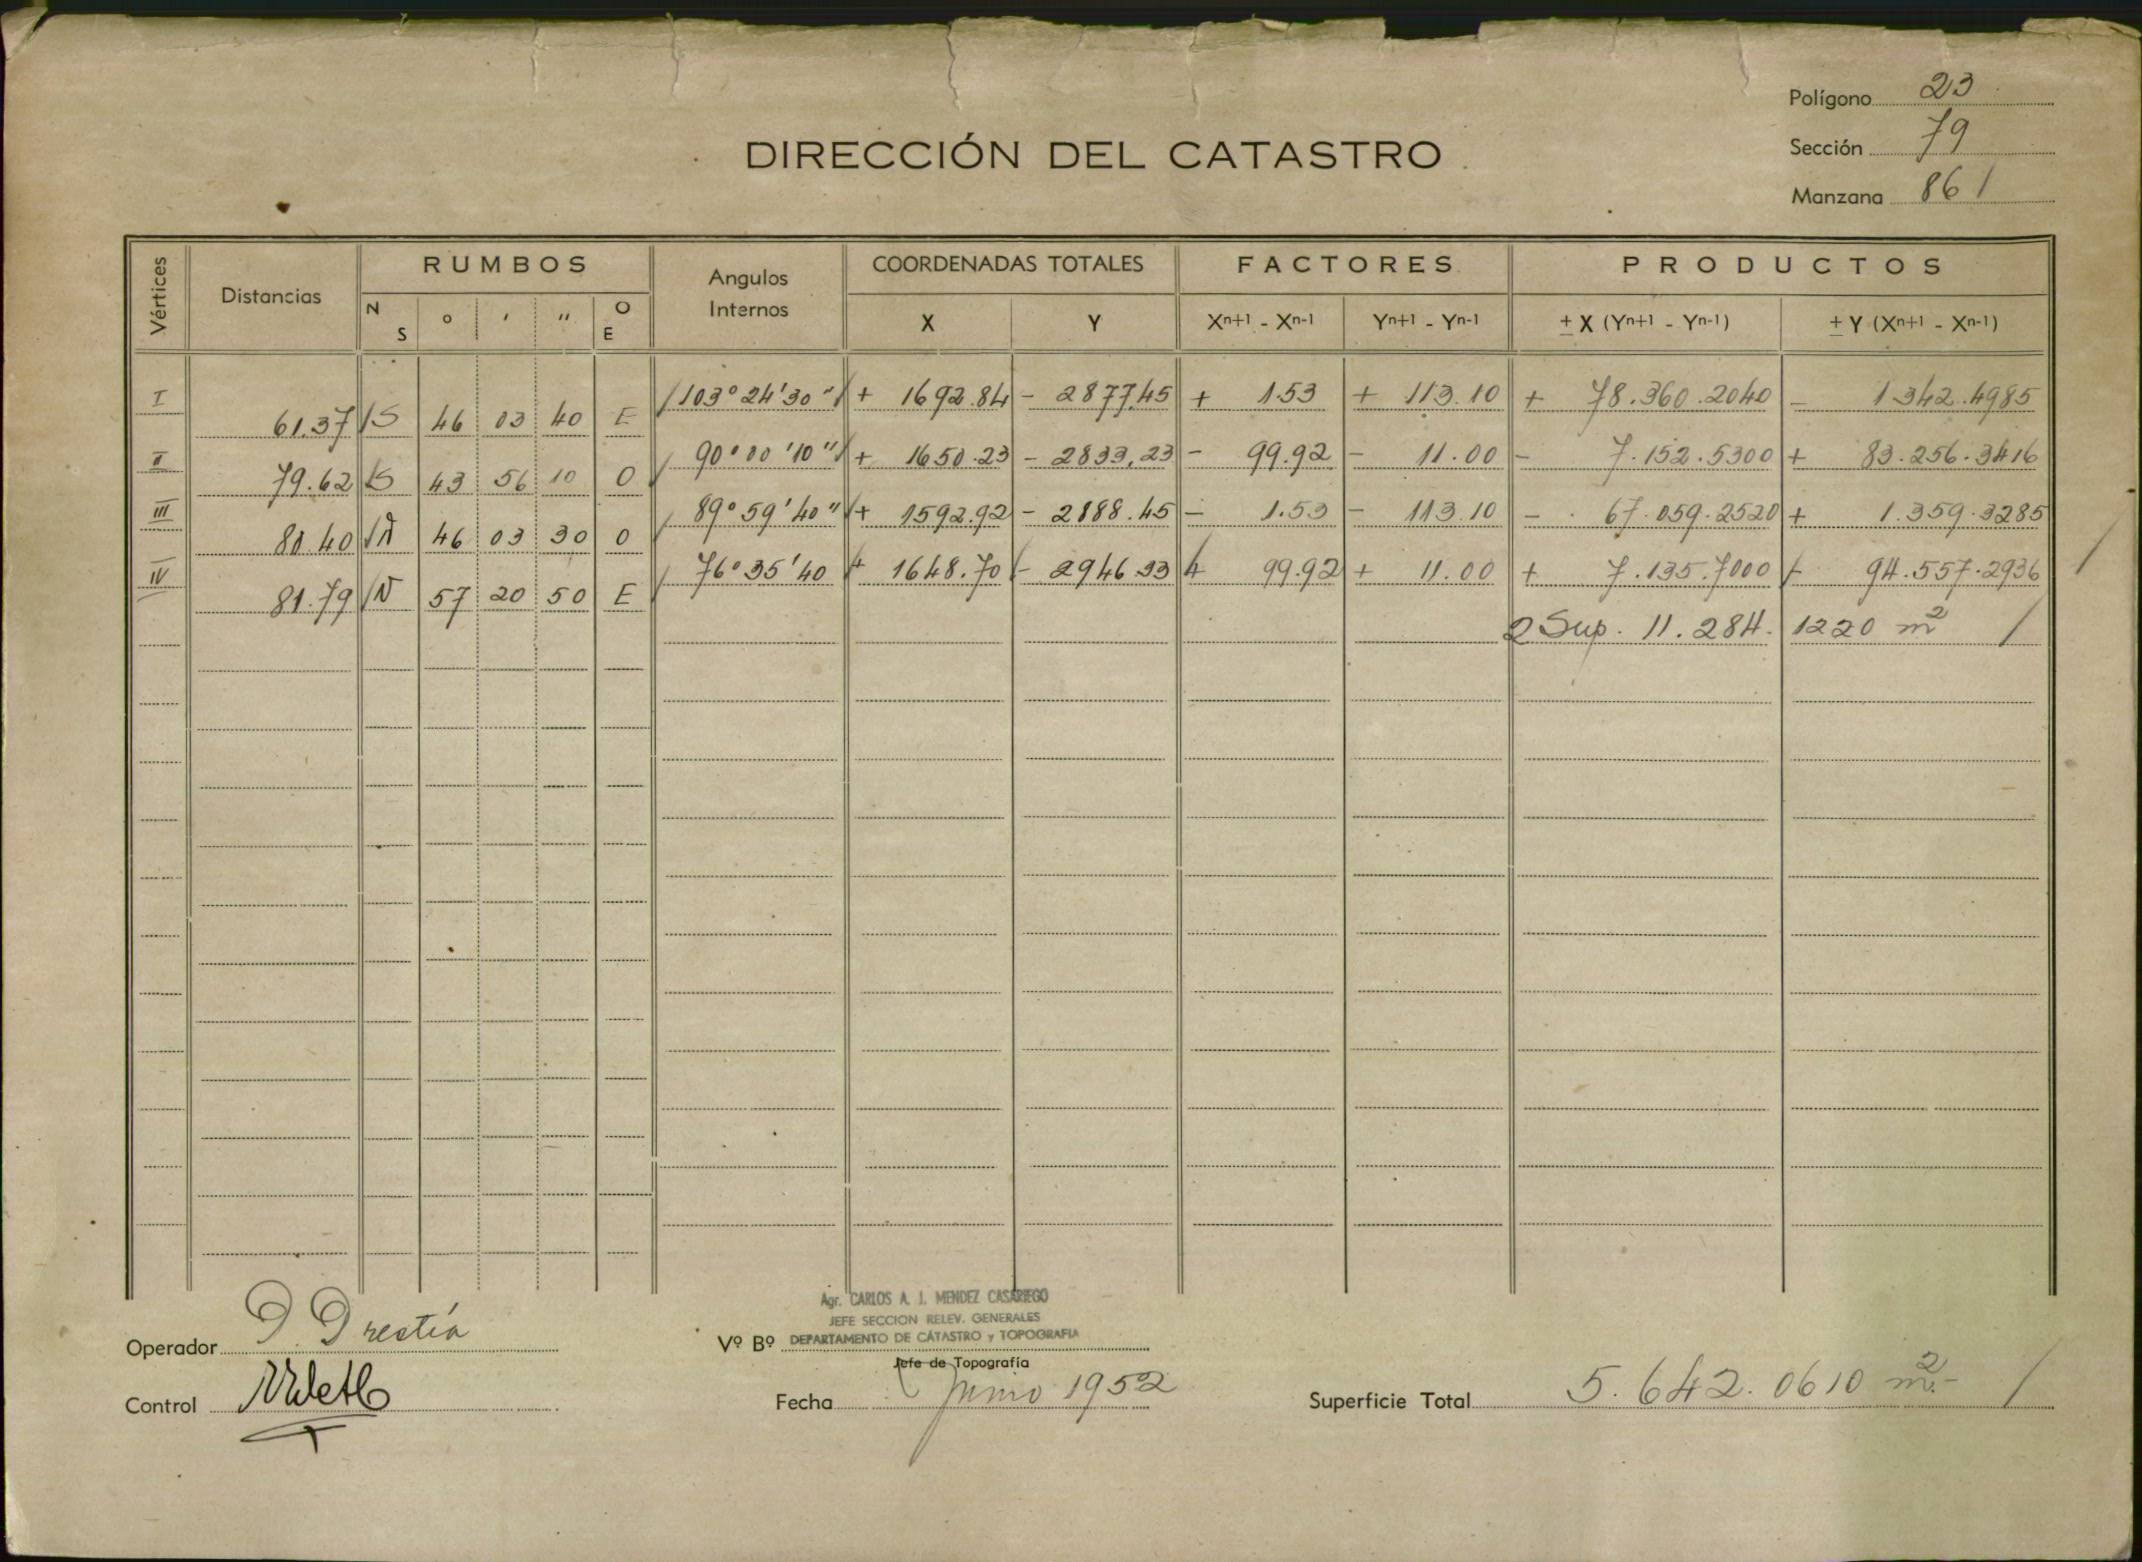 Polígono 23
Sección 79
Manzana 861
DIRECCIÓN DEL CATASTRO
Vértices Distancias RUMBOS Angulos Internos COORDENADAS TOTALES FACTORES PRODUCTOS
N S ° ' " O E X Y Xn+1 - Xn-1 Yn+1 - Yn-1 ± X (Yn+1 - Yn-1) ± Y (Xn+1 - Xn-1)
I 103°24'30" + 1692.84 - 2877.45 + 1.53 + 113.10 + 78.360.2040 - 1.342.4985
61.37 S 46 03 40 E
II 90°00'10" + 1650.23 - 2833.23 - 99.92 - 11.00 - 7.152.5300 + 83.256.3416
79.62 S 43 56 10 O
III 89°59'40" + 1592.92 - 2888.45 - 1.53 - 113.10 - 67.059.2520 + 1.359.3285
80.40 N 46 03 30 O
IV 76°35'40 + 1648.70 - 2946.33 + 99.92 + 11.00 + 7.135.7000 - 94.557.2936
81.79 N 57 20 50 E
2 Sup. 11.284.1220 m2
Agr. CARLOS A. J. MENDEZ CASARIEGO
JEFE SECCION RELEV. GENERALES
DEPARTAMENTO DE CATASTRO y TOPOGRAFIA
Operador
Vº Bº
Jefe de Topografía
Control
Fecha Junio 1952
Superficie Total 5.642.0610 m2.-